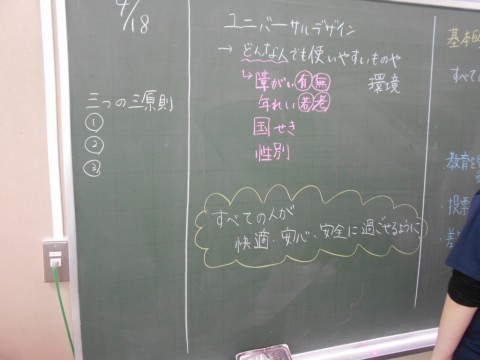 4/18
三つの三原則
①
②
③
ユニバーサルデザイン
→ どんな人でも使いやすいものや
環境
↳ 障がい 有 無
年れい 若 老
国せき
性別
すべての人が
快適・安心・安全に過ごせるように
基本
すべて
教育を
投票